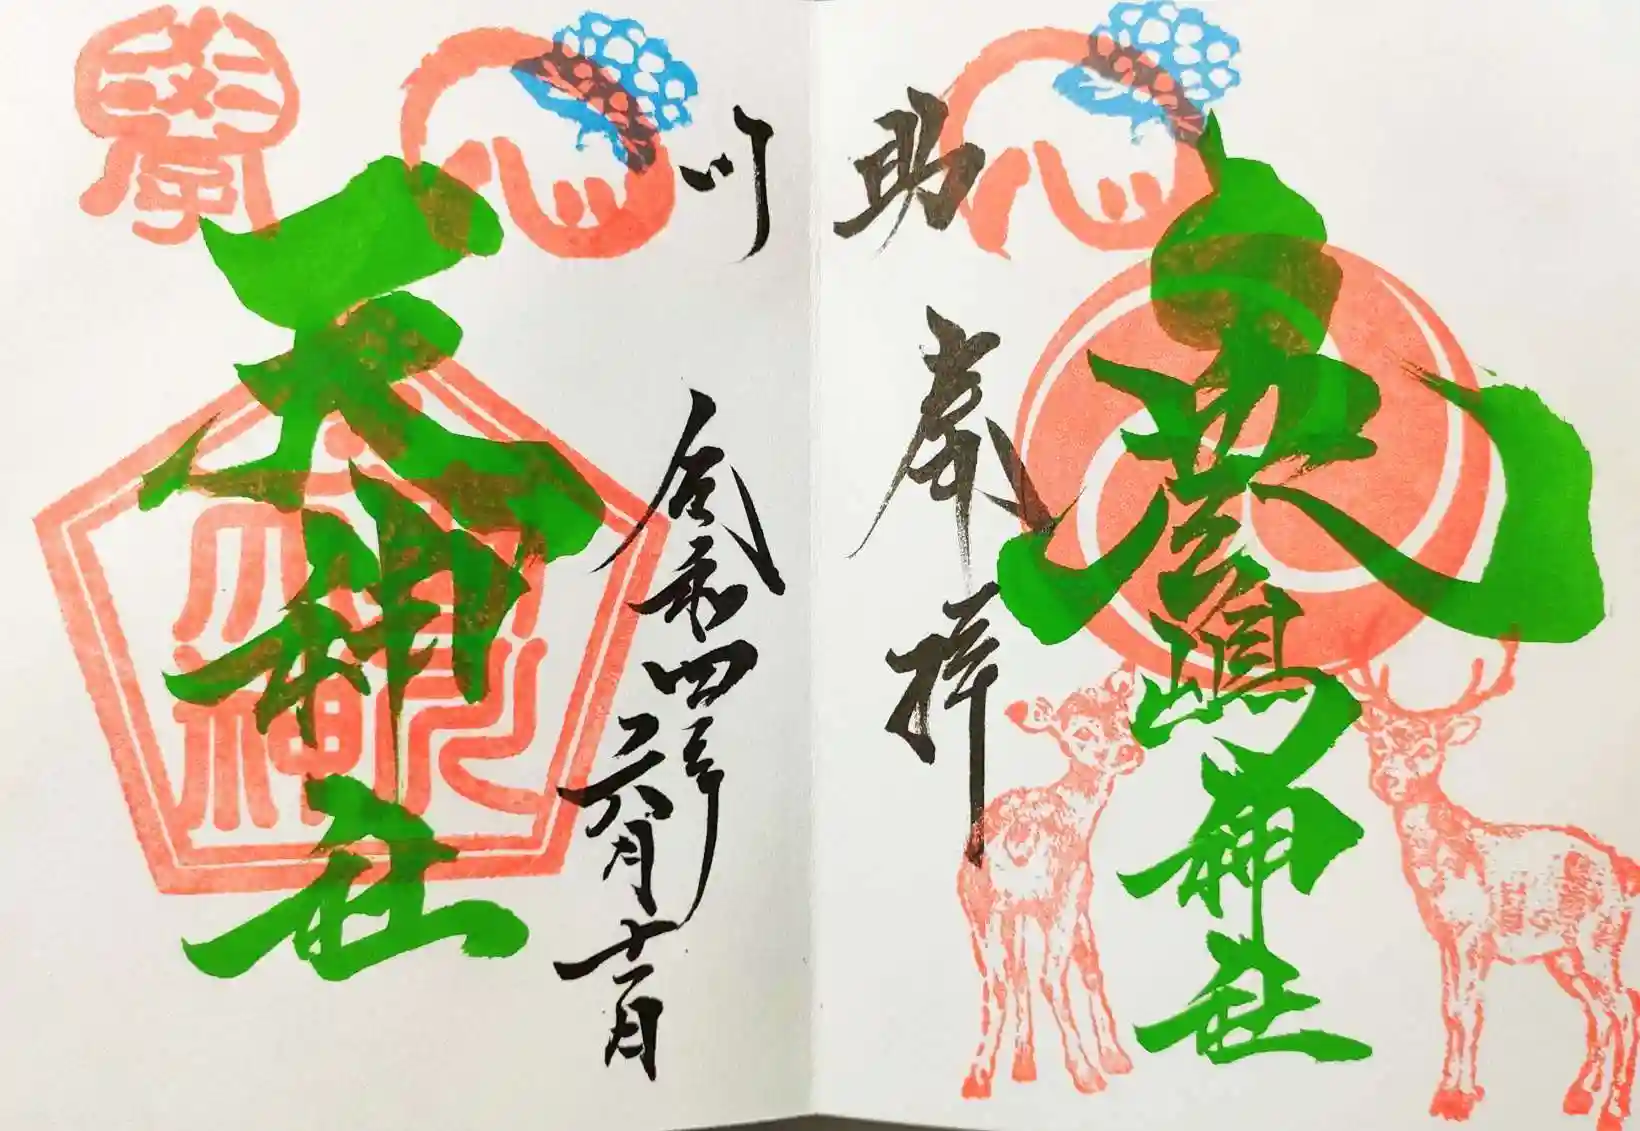 鹿嶋神社
助川
奉拝
令和四年六月十二日
天神社
心
心
學